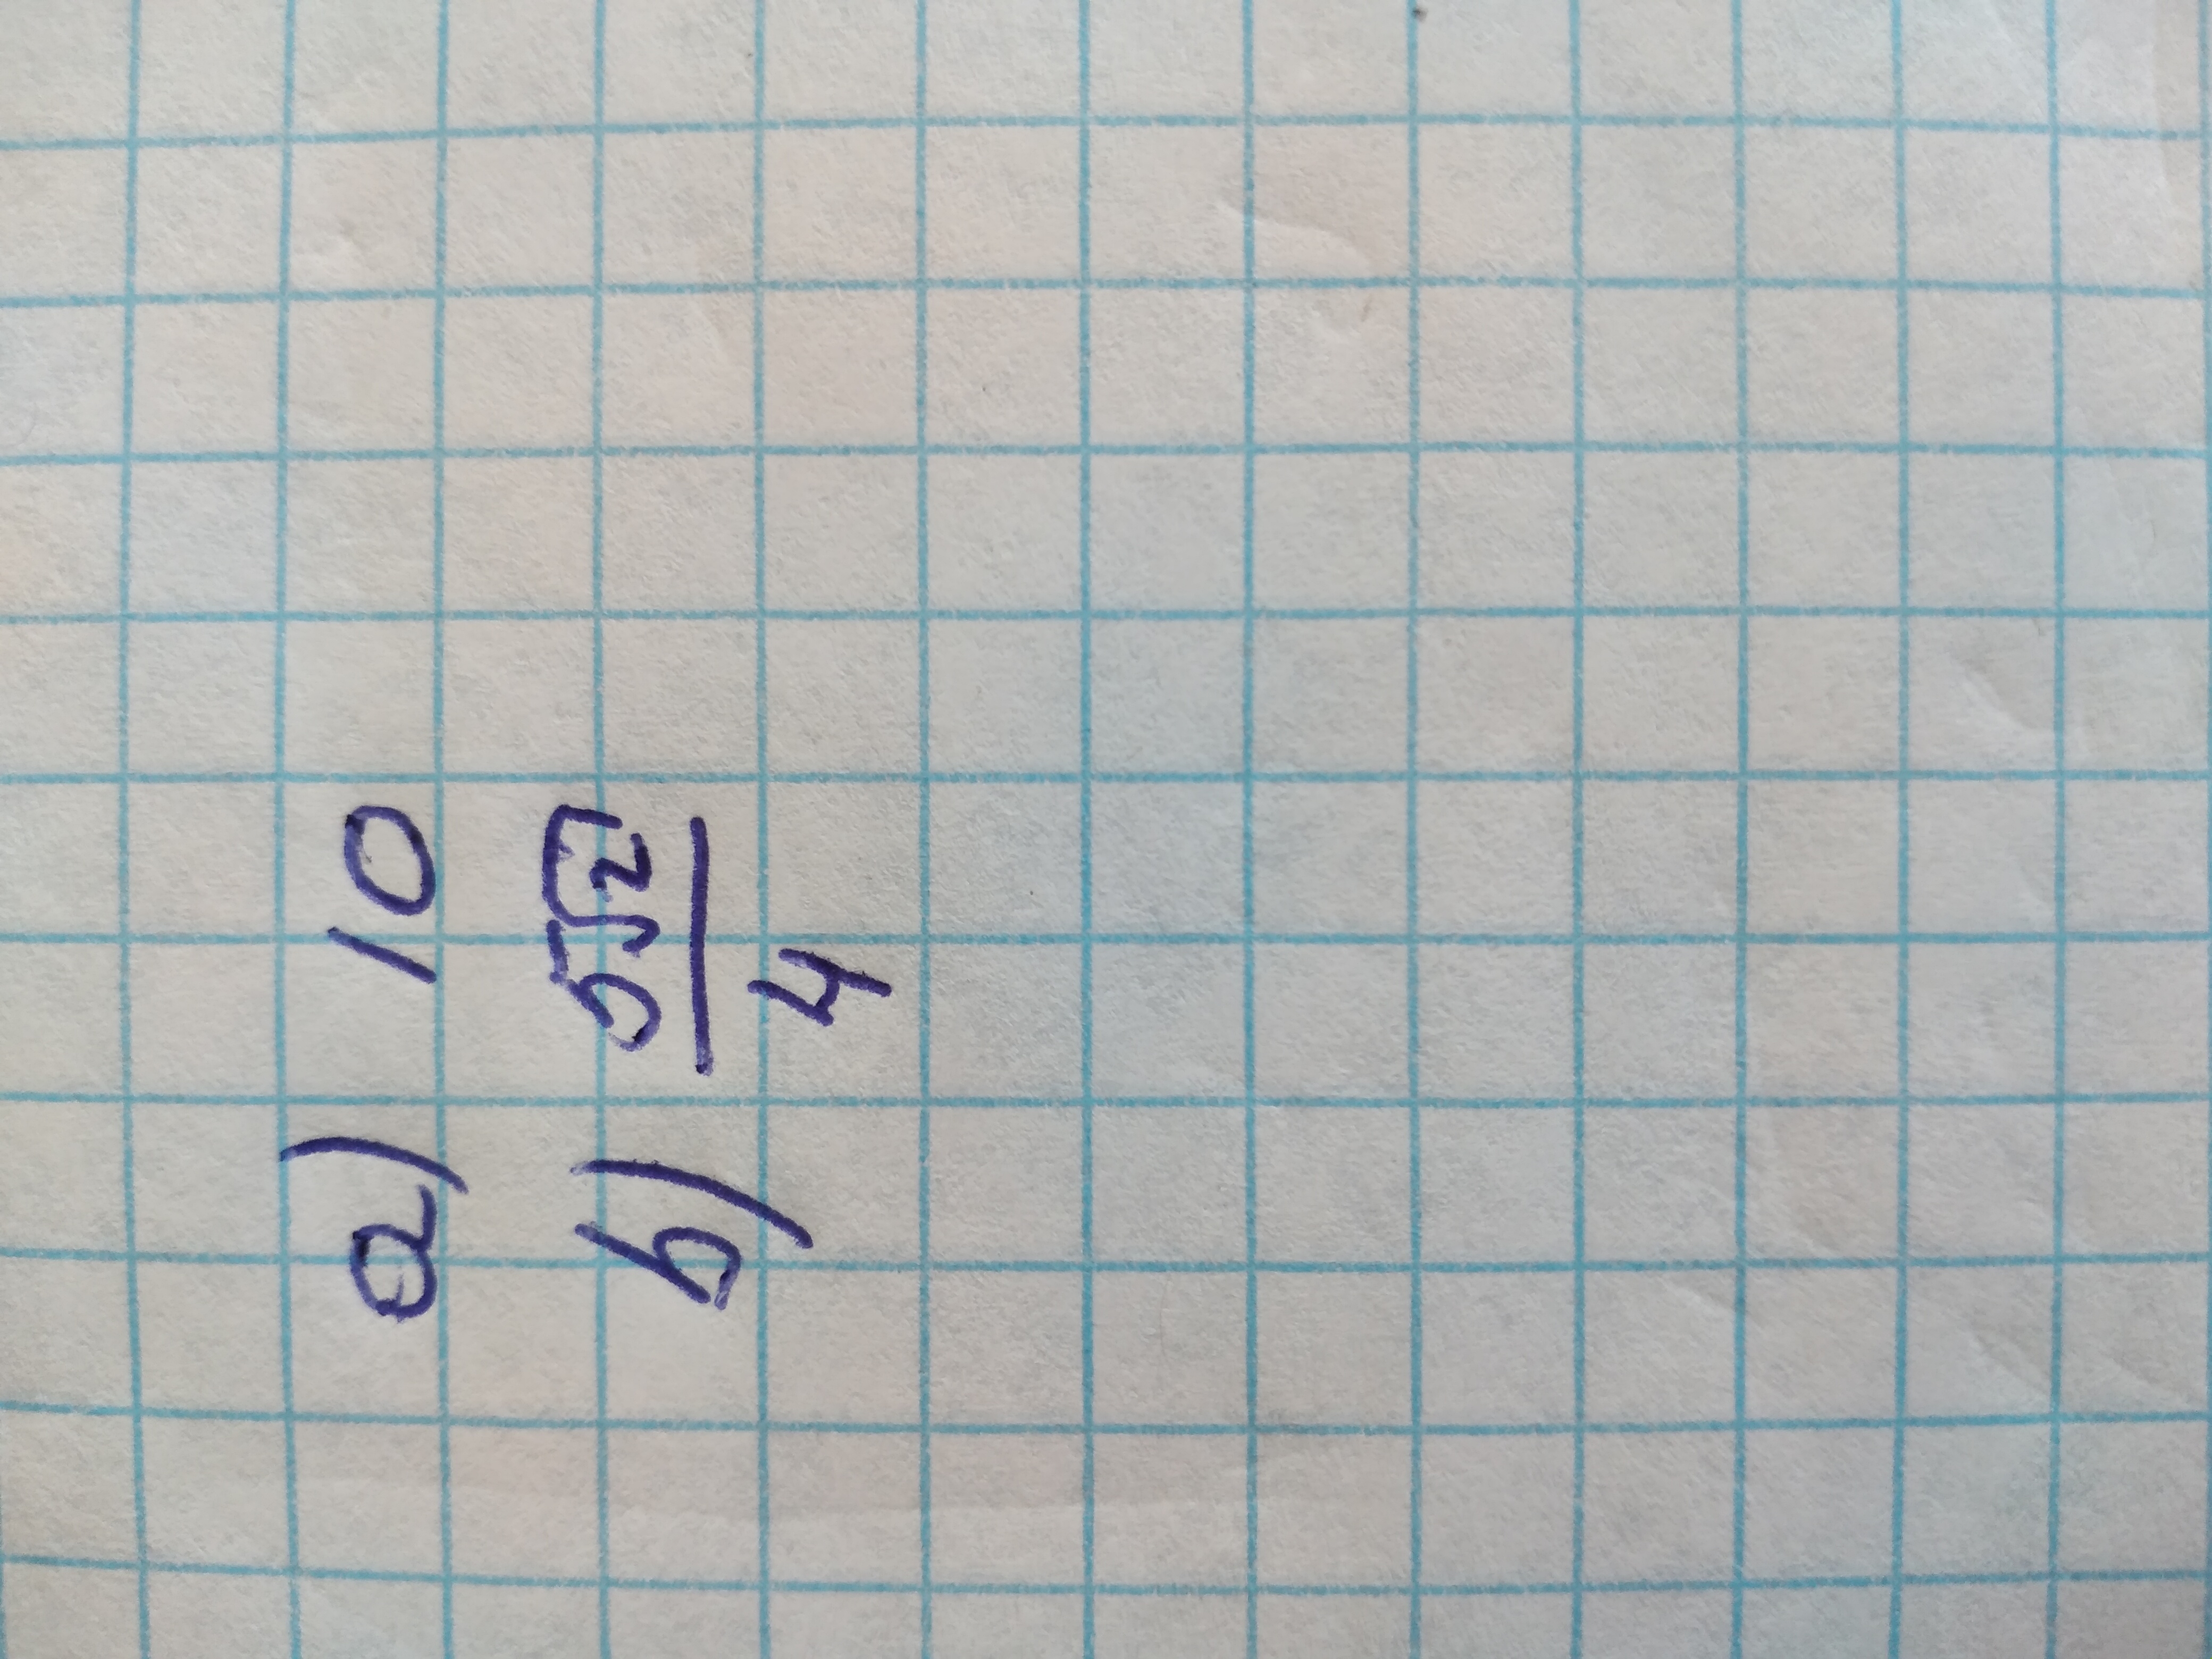 a) 10
b) 5√2/4